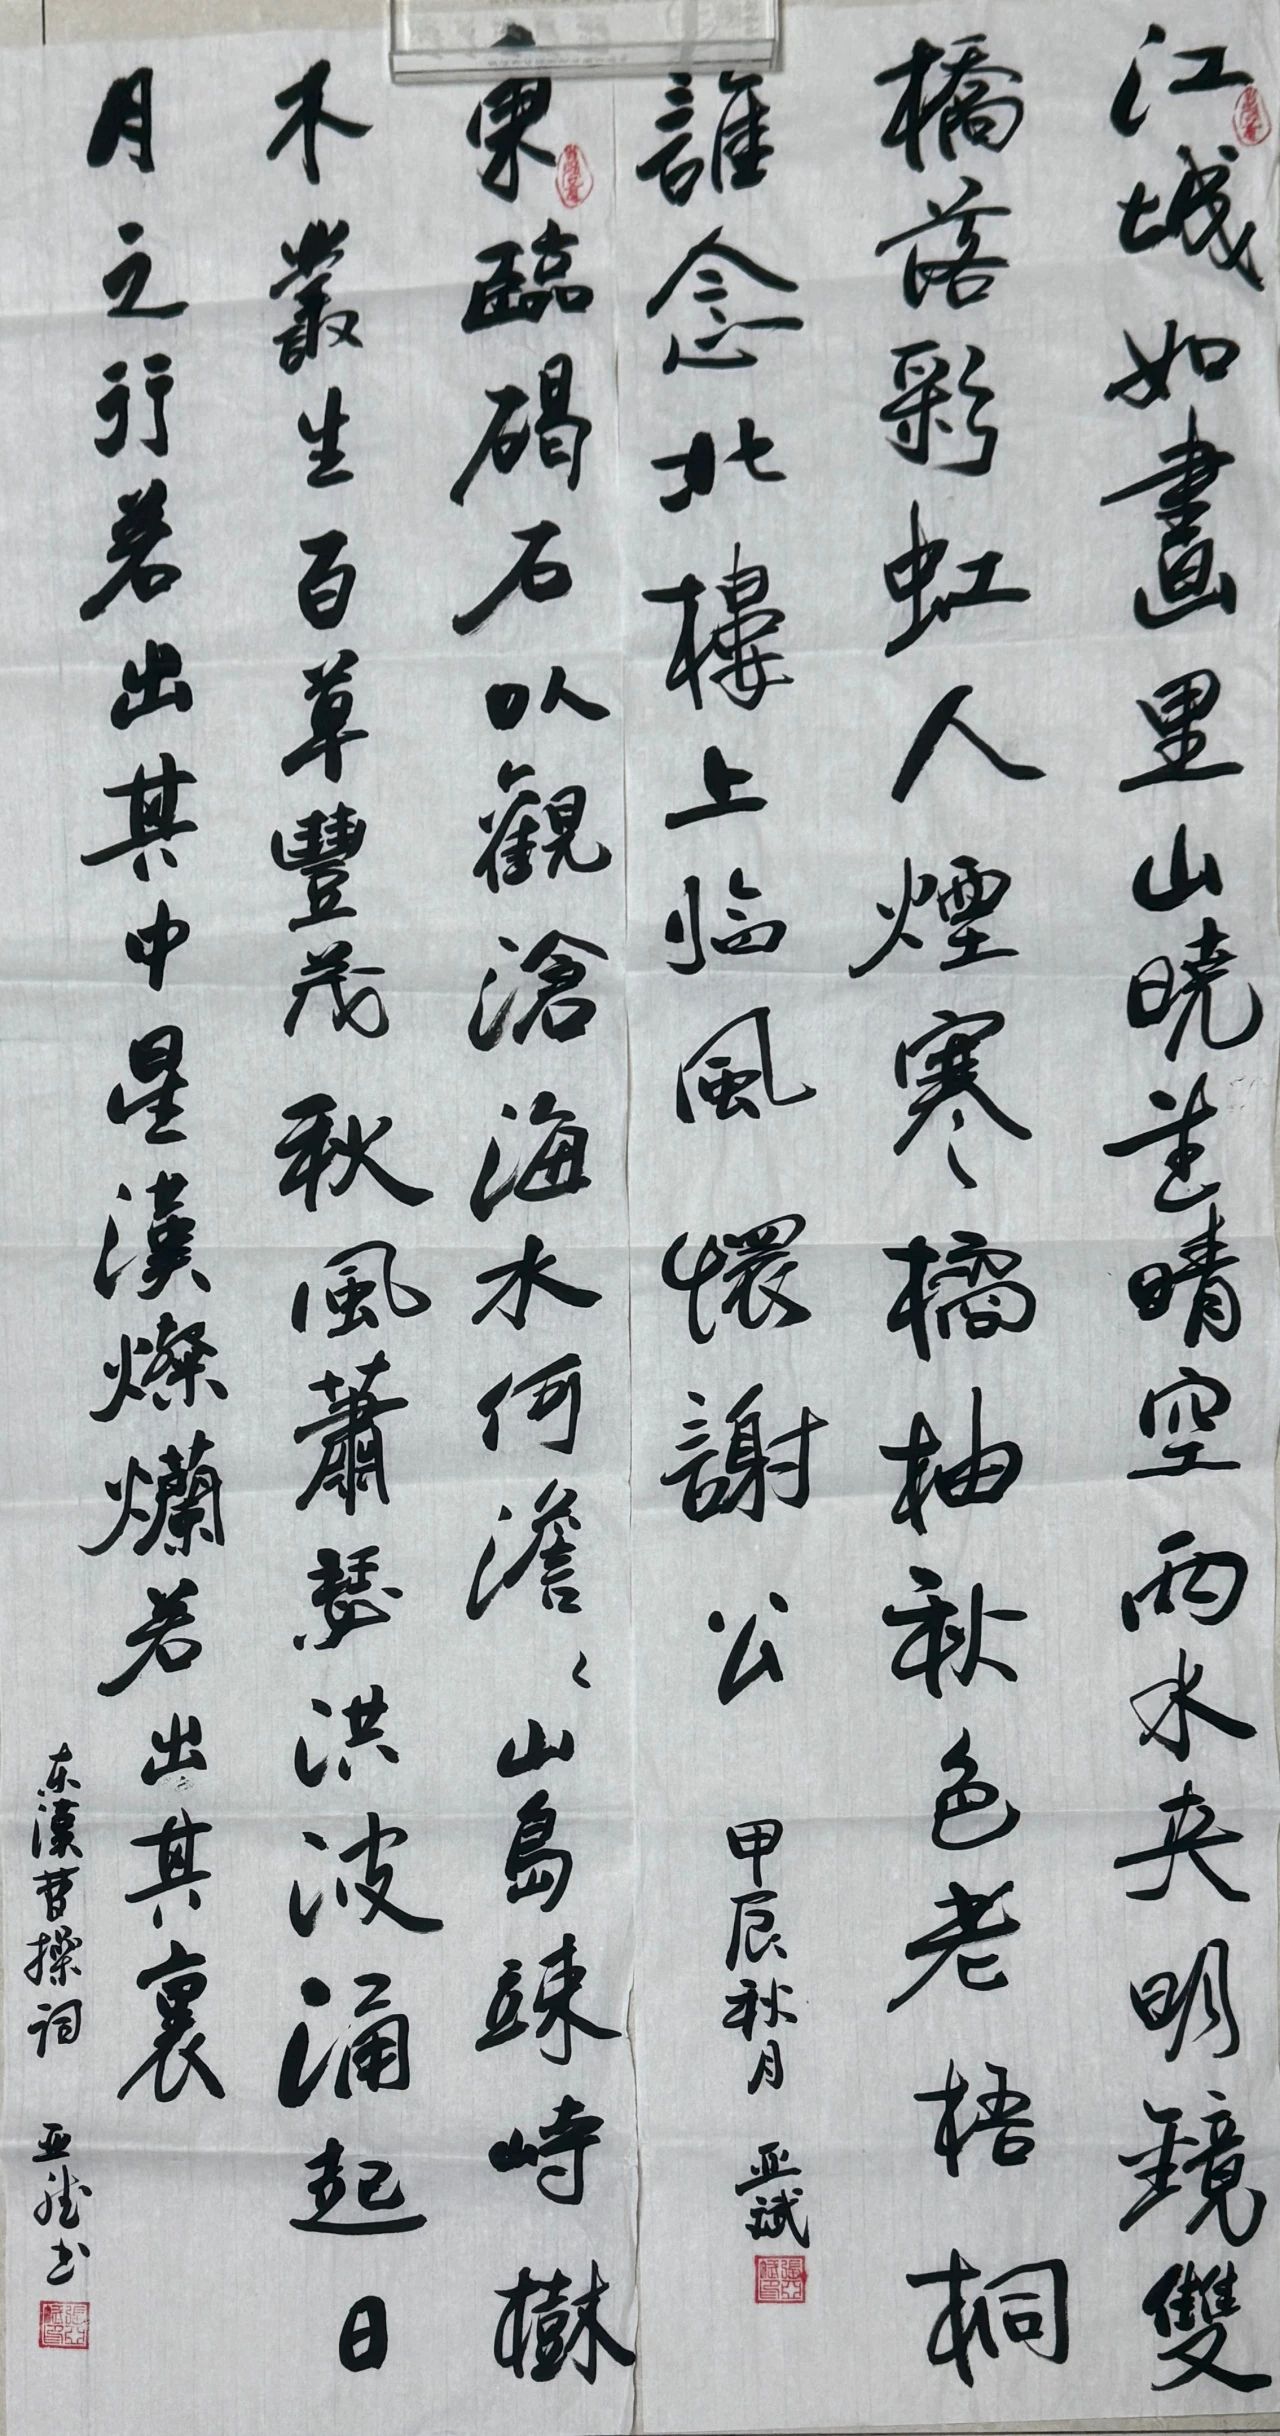 江城如畫里山晓望晴空兩水夹明鏡雙
橋落彩虹人煙寒橘柚秋色老梧桐
誰念北樓上临風懷謝公
甲辰秋月 亚斌
東臨碣石以觀滄海水何澹〻山島竦峙樹
木叢生百草豐茂秋風蕭瑟洪波涌起日
月之行若出其中星漢燦爛若出其裏
东漢曹操詞 亚斌书